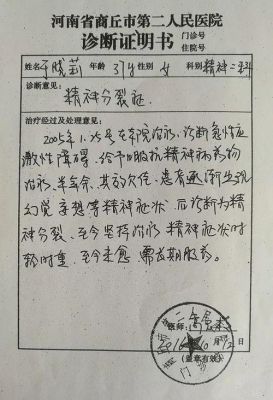 河南省商丘市第二人民医院
诊断证明书
门诊号
住院号
姓名 晓莉 年龄 37岁 性别 女 科别 精神二科
诊断意见：
精神分裂症
治疗经过及处理意见：
2005年1.25号在我院治疗,诊断急性应
激性障碍,给予口服抗精神病药物
治疗,半年余,其效欠佳,患者逐渐出现
幻觉妄想等精神症状,后诊断为精
神分裂,至今坚持治疗,精神症状时
轻时重,至今未愈,需长期服药。
医师：
(盖章有效)